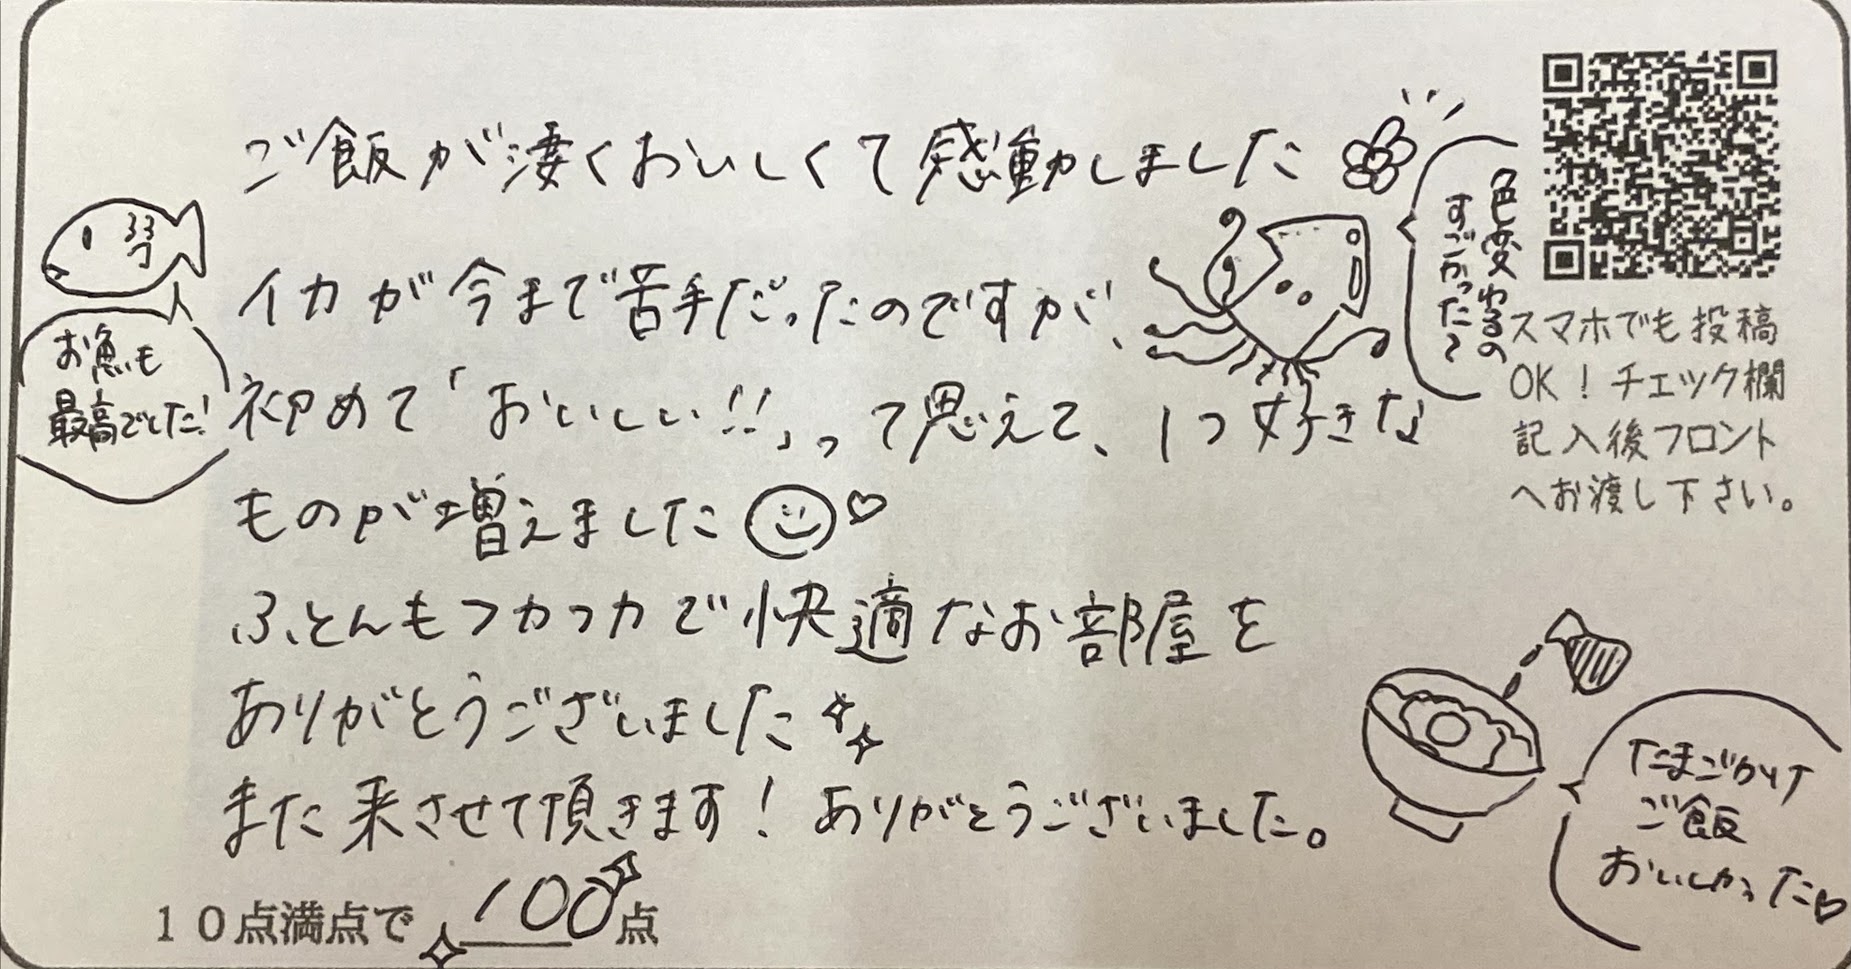 ご飯が凄くおいしくて感動しました
イカが今まで苦手だったのですが、
初めて「おいしい!!」って思えて、1つ好きな
ものが増えました
ふとんもフカフカで快適なお部屋を
ありがとうございました
また来させて頂きます！ありがとうございました。
10点満点で 100点
お魚も
最高でした!
色変わるの
すごかった〜
スマホでも投稿
OK！チェック欄
記入後フロント
へお渡し下さい。
たまごかけ
ご飯
おいしかった♡